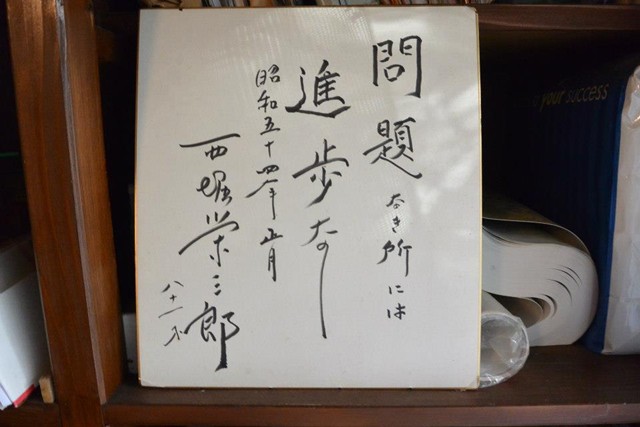 問題なき所には
進歩なし
昭和五十四年正月
西堀栄三郎
your success